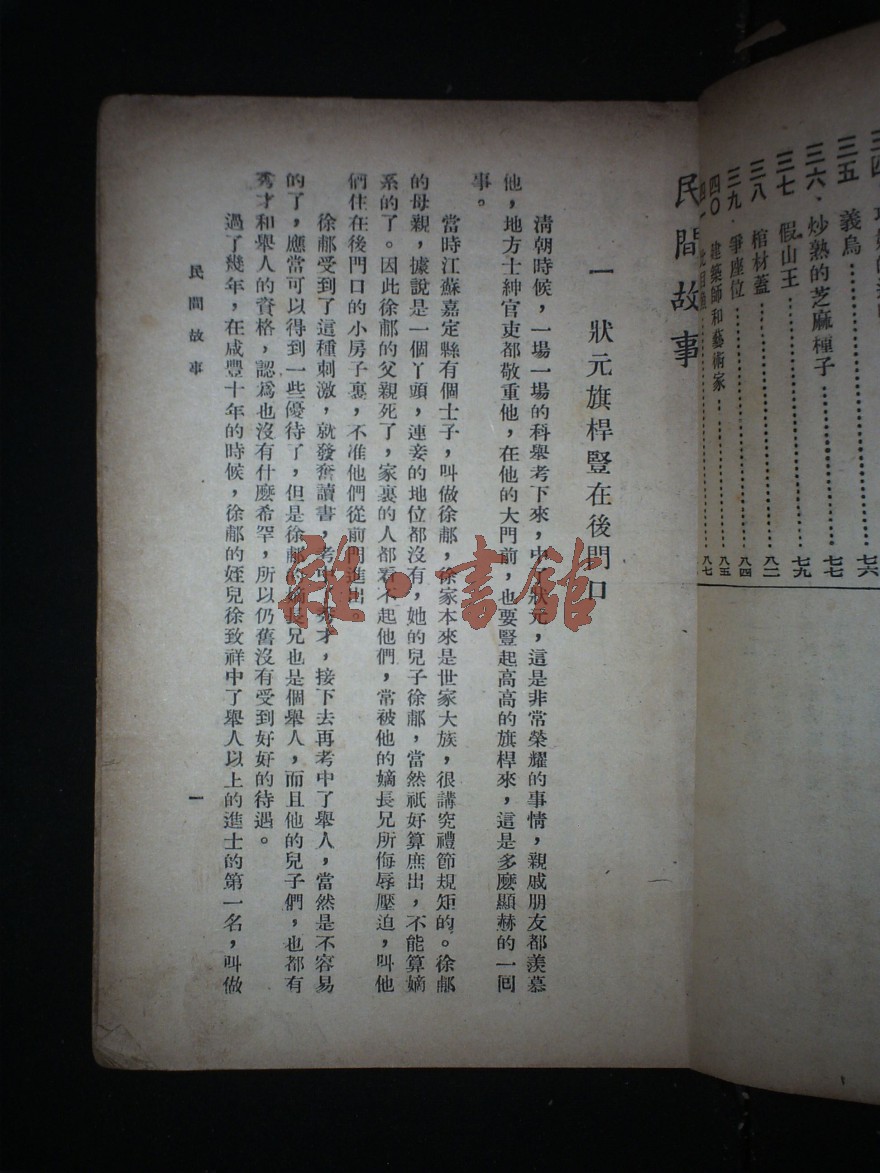 三四
三五 義烏……………………七六
三六．炒熟的芝麻種子……………………七七
三七 假山王……………………七九
三八 棺材蓋……………………八二
三九．爭座位……………………八四
四〇 建築師和藝術家……………………八五
四一……………………八七
民間故事
一 狀元旗桿豎在後門口
清朝時候，一場一場的科舉考下來，中了狀元，這是非常榮耀的事情，親戚朋友都羨慕
他，地方士紳官吏都敬重他，在他的大門前，也要豎起高高的旗桿來，這是多麼顯赫的一回
事。
當時江蘇嘉定縣有個士子，叫做徐郙，徐家本來是世家大族，很講究禮節規矩的。徐郙
的母親，據說是一個丫頭，連妾的地位都沒有，她的兒子徐郙，當然祇好算庶出，不能算嫡
系的了。因此徐郙的父親死了，家裏的人都看不起他們，常被他的嫡長兄所侮辱壓迫，叫他
們住在後門口的小房子裏，不准他們從前門進出
徐郙受到了這種刺激，就發奮讀書，考中秀才，接下去再考中了舉人，當然是不容易
的了，應當可以得到一些優待了，但是徐郙的嫡長兄也是個舉人，而且他的兒子們，也都有
秀才和舉人的資格，認爲也沒有什麼希罕，所以仍舊沒有受到好好的待遇。
過了幾年，在咸豐十年的時候，徐郙的姪兒徐致祥中了舉人以上的進士的第一名，叫做
民間故事
一
雜·書館